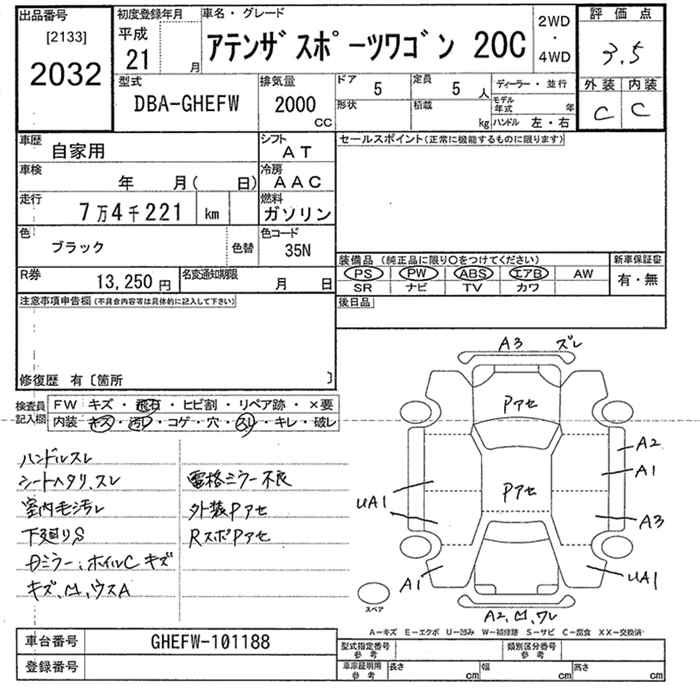 出品番号
[2133]
2032
初度登録年月
平成
21 月
車名・グレード
アテンザスポーツワゴン 20C
2WD
・
4WD
評価点
3.5
外装 内装
C C
型式
DBA-GHEFW
排気量
2000
CC
ドア
5
定員
5 人
ディーラー・並行
形状
積載
kg
モデル年式 年
ハンドル 左・右
車歴
自家用
シフト
AT
車検
年 月( 日)
冷房
AAC
走行
7万4千221 km
燃料
ガソリン
色
ブラック
色替
色コード
35N
R券
13,250円
名変通知期限
月 日
セールスポイント(正常に機能するものに限ります)
装備品 (純正品に限り〇をつけてください)
PS PW ABS エアB AW
SR ナビ TV カワ
新車保証書
有・無
後日品
注意事項申告欄 (不具合内容等は具体的に記入して下さい)
修復歴 有〔箇所 〕
検査員記入欄
FW キズ・飛石・ヒビ割・リペア跡・×要
内装 キズ・汚レ・コゲ・穴・スリ・キレ・破レ
ハンドルスレ
シートヘタリ、スレ
室内毛汚レ
下廻りS
Dミラー:ホイルC キズ
キズ、凹、ウスA
電格ミラー不良
外装Pアセ
RスポPアセ
A3 ズレ
Pアセ
Pアセ
A2
A1
A3
UA1
UA1
A1
A2、凹、ワレ
スペア
A-キズ E-エクボ U-凹み W-補修跡 S-サビ C-腐食 XX-交換済
車台番号
GHEFW-101188
登録番号
型式指定番号
参考
類別区分番号
参考
車庫証明用
参考
長さ cm
幅 cm
高さ cm